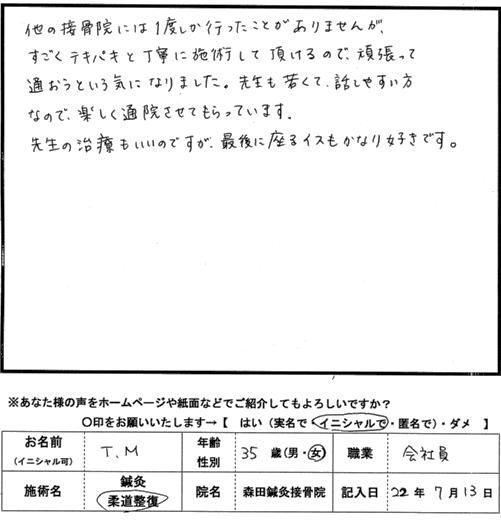 他の接骨院には1度しか行ったことがありませんが、
すごくテキパキと丁寧に施術して頂けるので、頑張って
通おうという気になりました。先生も若くて、話しやすい方
なので、楽しく通院させてもらっています。
先生の治療もいいのですが、最後に座るイスもかなり好きです。
※あなた様の声をホームページや紙面などでご紹介してもよろしいですか？
〇印をお願いいたします→【　はい（実名で・イニシャルで・匿名で）・ダメ　】
お名前（イニシャル可） T.M 年齢 性別 35 歳（男・女） 職業 会社員
施術名 鍼灸 柔道整復 院名 森田鍼灸接骨院 記入日 22年 7月13日